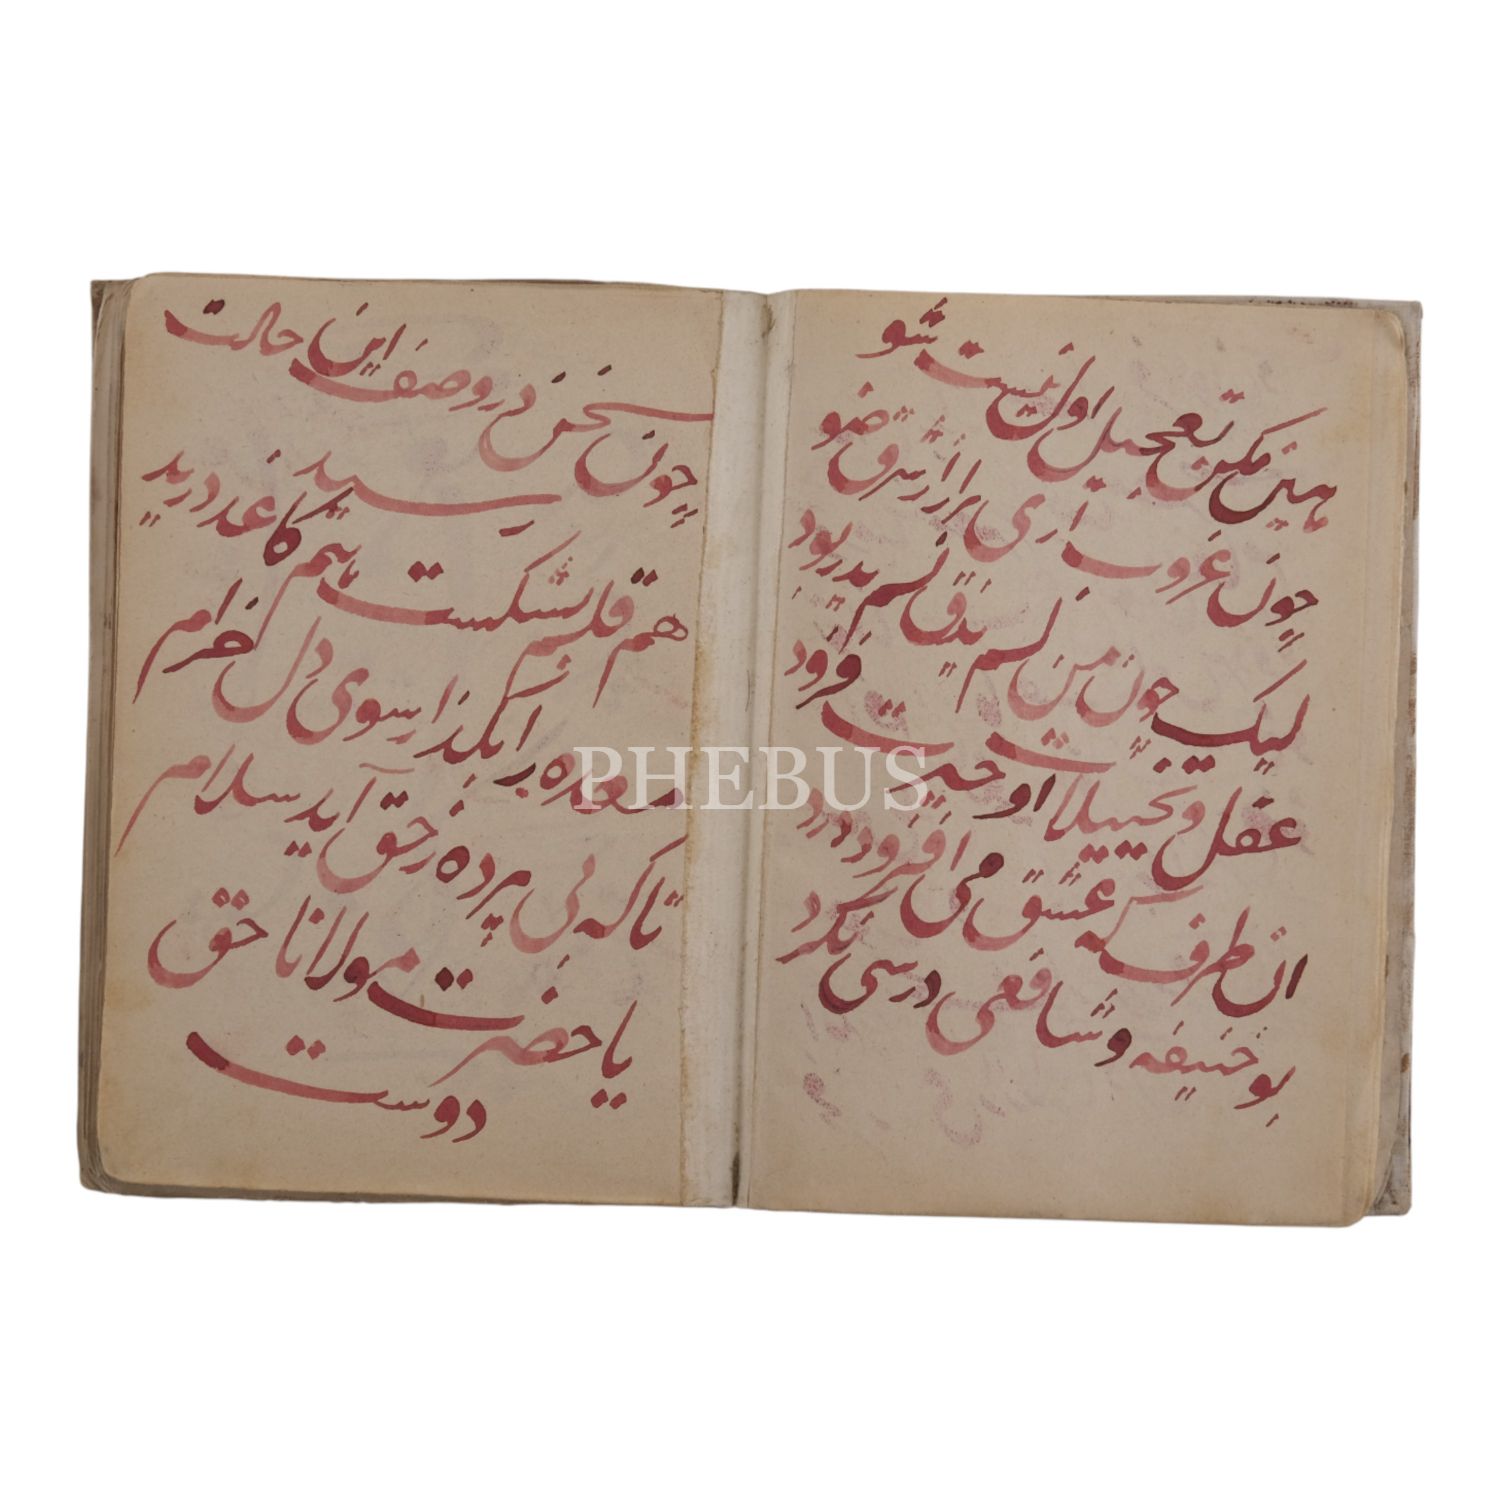 هین مکن تعجیل اول نیست شو
چون غروب آری برا از شرق ضو
لیک چون من لم یذق لم یدر بود
عقل و تخییلات او حیرت فزود
آن طرف که عشق می افزود درد
بو حنیفه و شافعی درسی نکرد
چون سخن در وصف این حالت
رسید
هم قلم بشکست هم کاغد درید
معده را بگذار سوی دل خرام
تا که بی پرده ز حق آید سلام
یا حضرت مولانا حق
دوست
PHEBUS